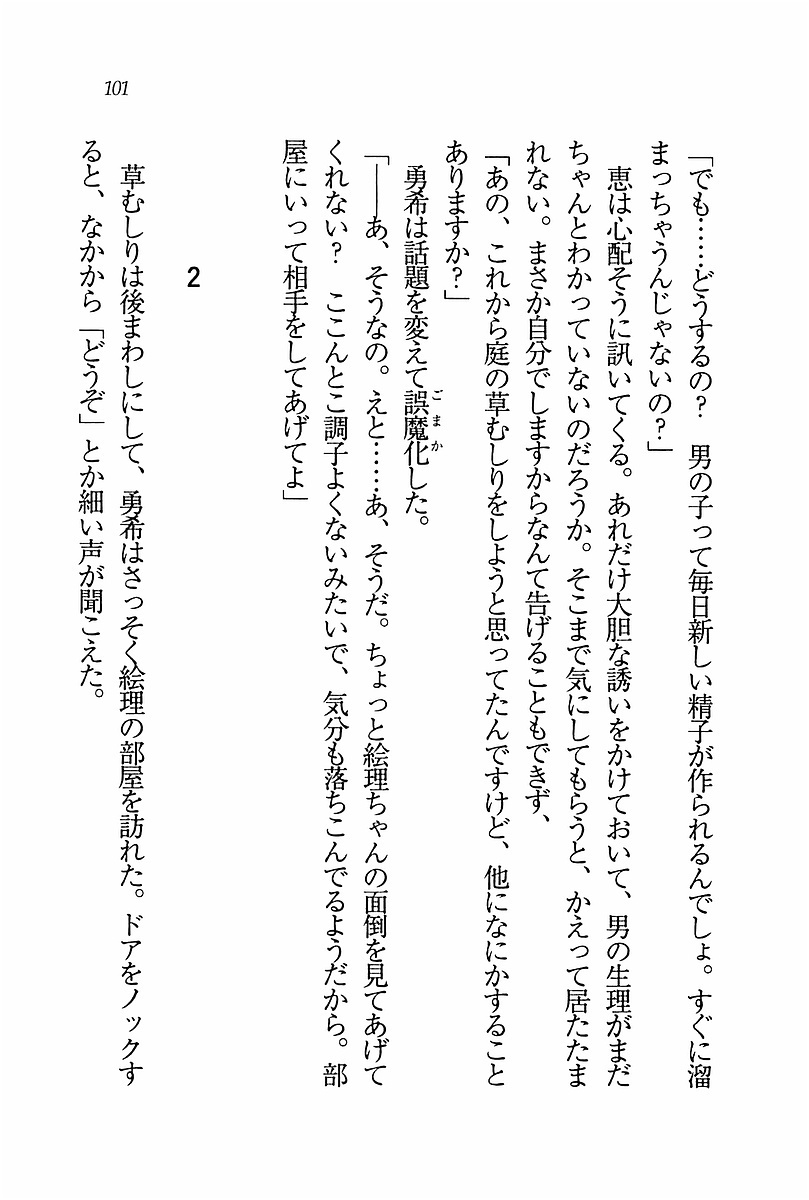 101
「でも……どうするの？　男の子って毎日新しい精子が作られるんでしょ。すぐに溜
まっちゃうんじゃないの？」
　恵は心配そうに訊いてくる。あれだけ大胆な誘いをかけておいて、男の生理がまだ
ちゃんとわかっていないのだろうか。そこまで気にしてもらうと、かえって居たたま
れない。まさか自分でしますからなんて告げることもできず、
「あの、これから庭の草むしりをしようと思ってたんですけど、他になにかすること
ありますか？」
　勇希は話題を変えて誤魔化した。
「――あ、そうなの。えと……あ、そうだ。ちょっと絵理ちゃんの面倒を見てあげて
くれない？　ここんとこ調子よくないみたいで、気分も落ちこんでるようだから。部
屋にいって相手をしてあげてよ」
2
　草むしりは後まわしにして、勇希はさっそく絵理の部屋を訪れた。ドアをノックす
ると、なかから「どうぞ」とか細い声が聞こえた。